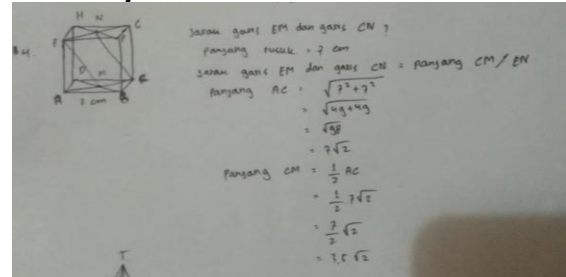 34.
H N G
E F
D M C
A B
7 cm
Jarak garis EM dan garis CN ?
Panjang rusuk = 7 cm
Jarak garis EM dan garis CN = panjang CM / EN
Panjang AC = √7²+7²
= √49+49
= √98
= 7√2
Panjang CM = 1/2 AC
= 1/2 7√2
= 7/2 √2
= 3,5 √2
T